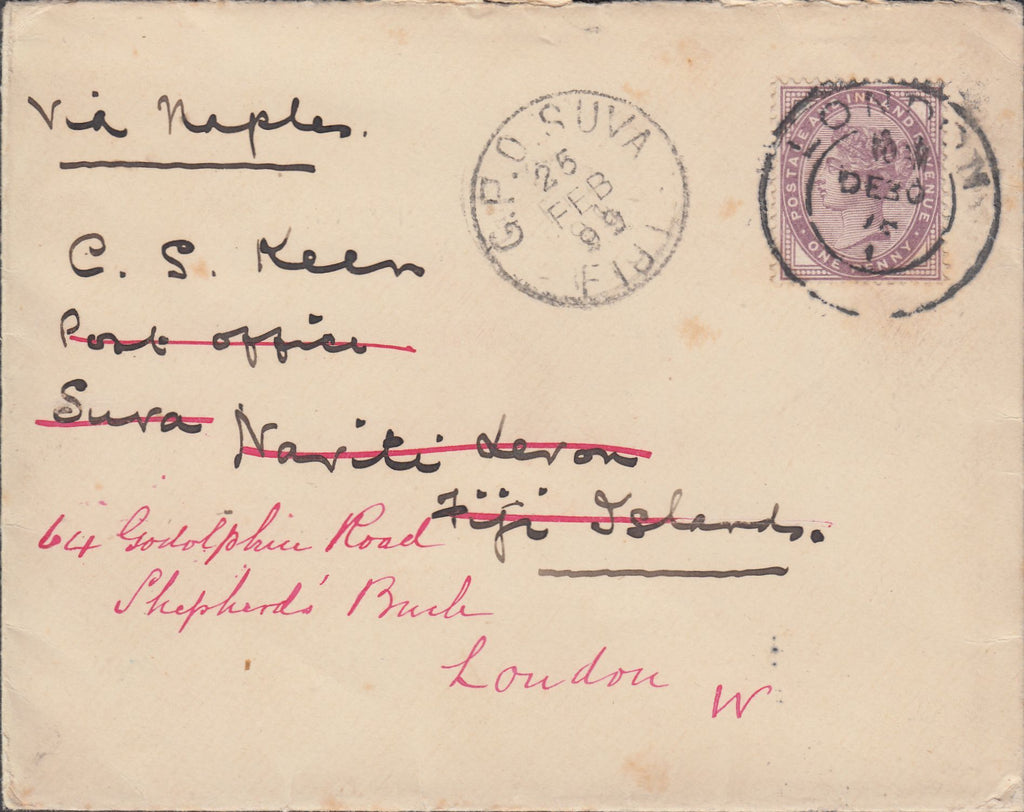 Via Naples.
G.P.O. SUVA
25
FEB
99
FIJI
LONDON
DE 30
POSTAGE AND INLAND REVENUE
ONE PENNY
C. S. Keen
Post office
Suva Naviti Levon
Fiji Islands.
64 Godolphin Road
Shepherd's Bush
London W